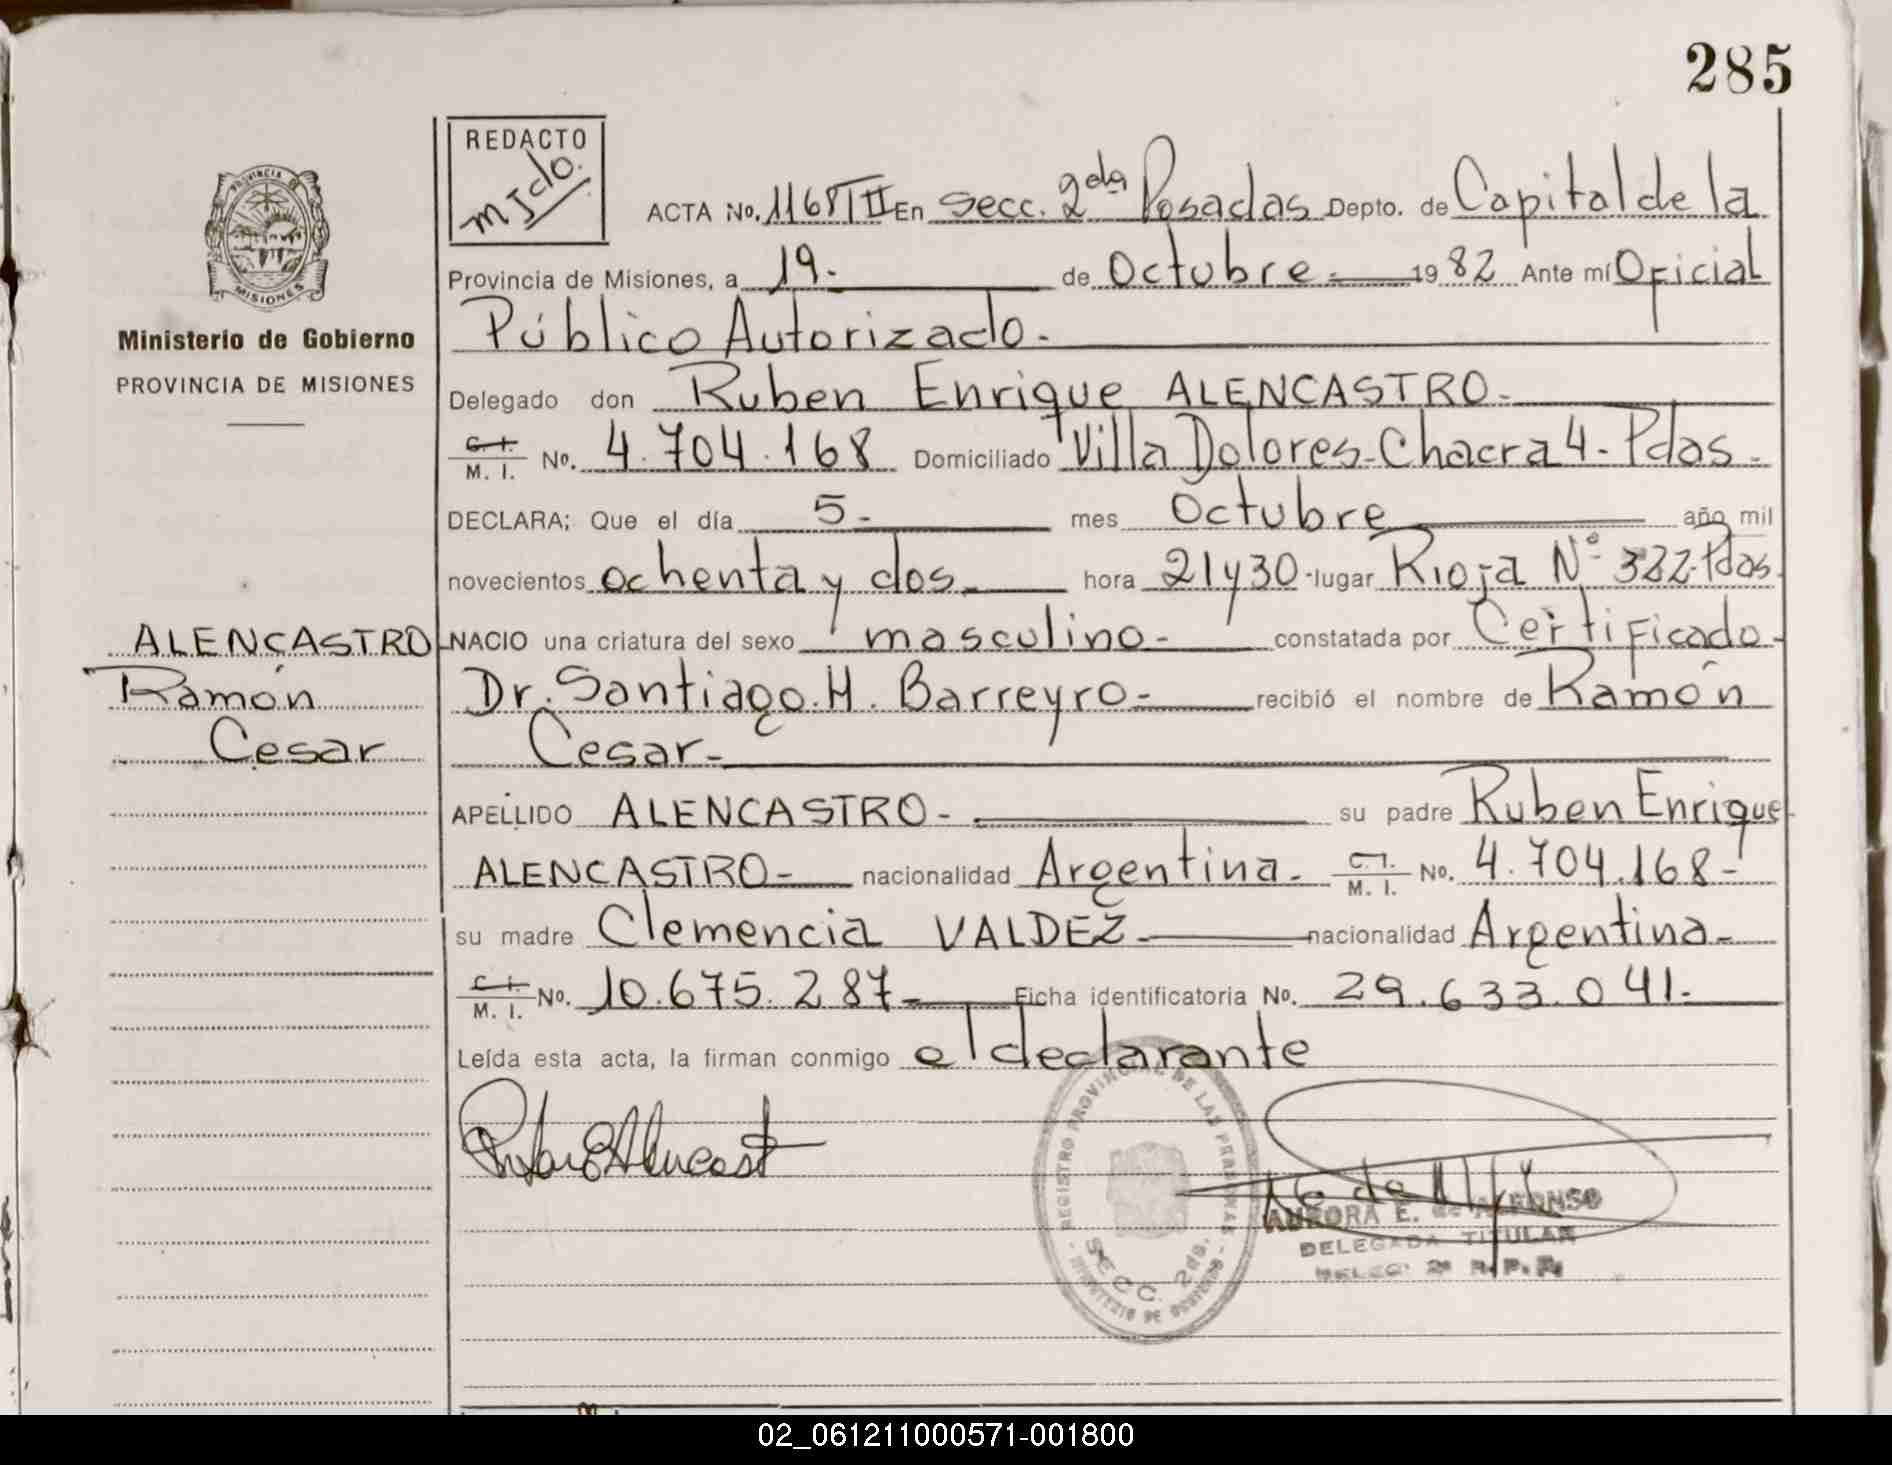 285
REDACTO
PROVINCIA DE
MISIONES
ACTA No. 1168/TII En Secc. 2da Posadas Depto. de Capital de la
Ministerio de Gobierno
PROVINCIA DE MISIONES
Provincia de Misiones, a 19.- de Octubre.- 1982 Ante mí Oficial
Público Autorizado.-
Delegado don Ruben Enrique ALENCASTRO.-
C. I. M. I. No. 4.704.168 Domiciliado Villa Dolores-Chacra 4.-Pdas.-
DECLARA; Que el día 5.- mes Octubre año mil
novecientos ochenta y dos.- hora 21 y 30.- lugar Rioja Nº 322-Pdas.
ALENCASTRO
NACIO una criatura del sexo masculino.- constatada por Certificado-
Ramón
Dr. Santiago. H. Barreyro.- recibió el nombre de Ramón
Cesar
Cesar.-
APELLIDO ALENCASTRO.- su padre Ruben Enrique
ALENCASTRO.- nacionalidad Argentina.- C. I. M. I. No. 4.704.168.-
su madre Clemencia VALDEZ.- nacionalidad Argentina.-
C. I. M. I. No. 10.675.287.- Ficha identificatoria No. 29.633.041.-
Leída esta acta, la firman conmigo el declarante
REGISTRO PROVINCIAL DE LAS PERSONAS
SECC. 2da.
MINISTERIO DE GOBIERNO
AURORA E. de ALFONSO
DELEGADA TITULAR
DELEG. 2a R. P. P.
02_061211000571-001800